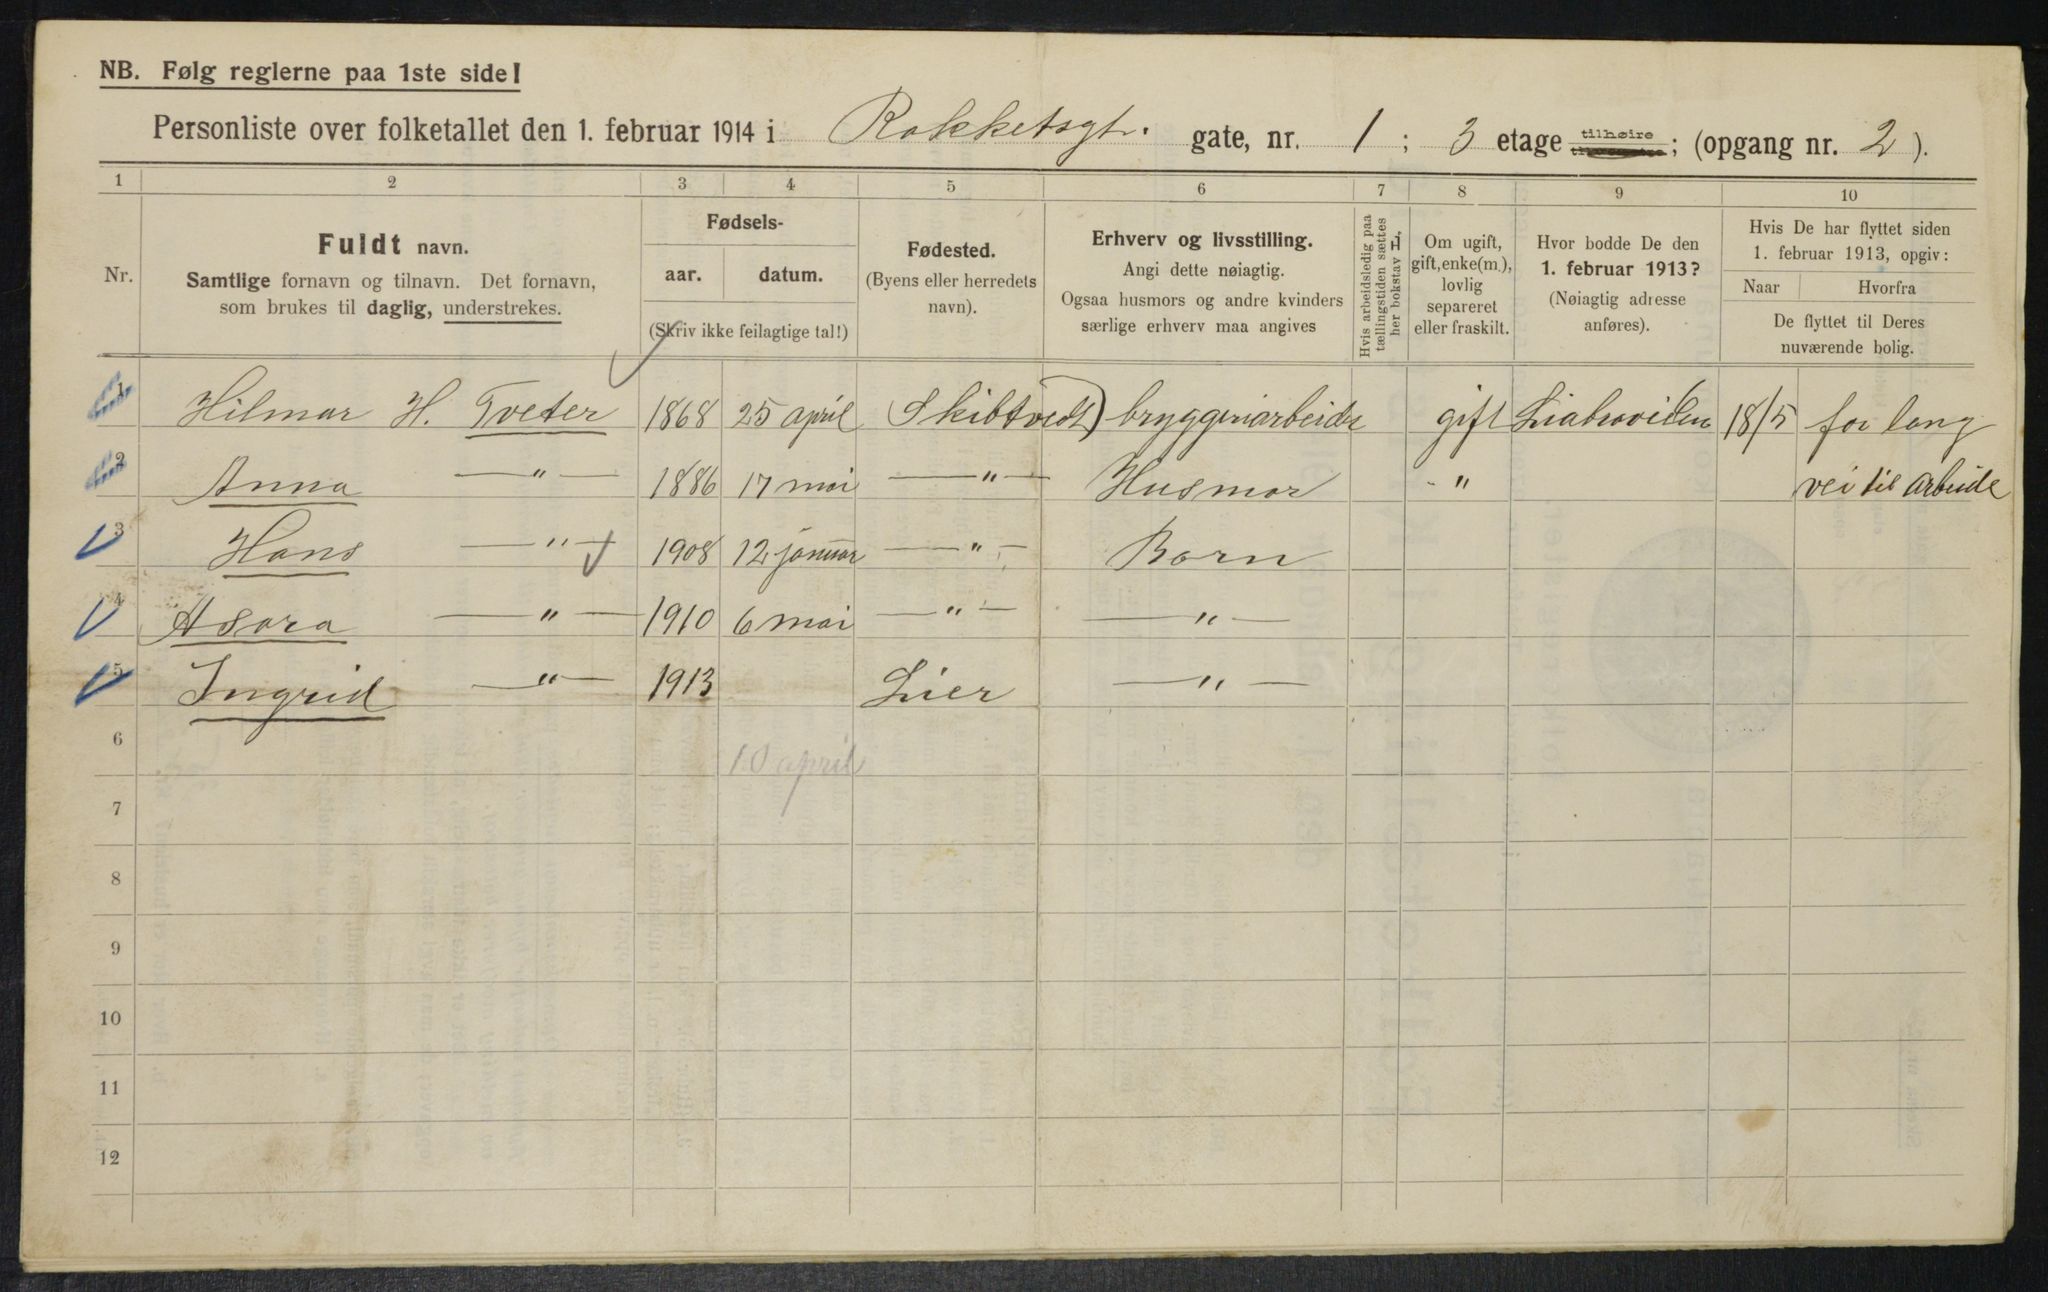 NB. Følg reglerne paa 1ste side!
Personliste over folketallet den 1. februar 1914 i Rokketsgt. gate, nr. 1 ; 3 etage tilhøire ; (opgang nr. 2 ).
1 2 3 4 5 6 7 8 9 10
Nr.
Fuldt navn.
Samtlige fornavn og tilnavn. Det fornavn,
som brukes til daglig, understrekes.
Fødsels-
aar. datum.
(Skriv ikke feilagtige tal!)
Fødested.
(Byens eller herredets
navn).
Erhverv og livsstilling.
Angi dette nøiagtig.
Ogsaa husmors og andre kvinders
særlige erhverv maa angives
Hvis arbeidsledig paa
tællingstiden sættes
her bokstav L.
Om ugift,
gift, enke(m.),
lovlig
separeret
eller fraskilt.
Hvor bodde De den
1. februar 1913?
(Nøiagtig adresse
anføres).
Hvis De har flyttet siden
1. februar 1913, opgiv:
Naar Hvorfra
De flyttet til Deres
nuværende bolig.
1 Hilmar H. Tveter 1868 25 april (Skibtvedt) bryggeriarbeider gift 18/5 for lang
2 Anna —"— 1886 17 mai —"— Husmor -" vei til arbeide
3 Hans —"— 1908 12 januar —"— Barn
4 Asora —"— 1910 6 mai —"— —"—
5 Ingrid —"— 1913 Lier —"—
6
10 april
7
8
9
10
11
12